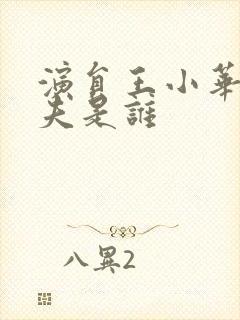 演員王小華
夫是誰
八異2